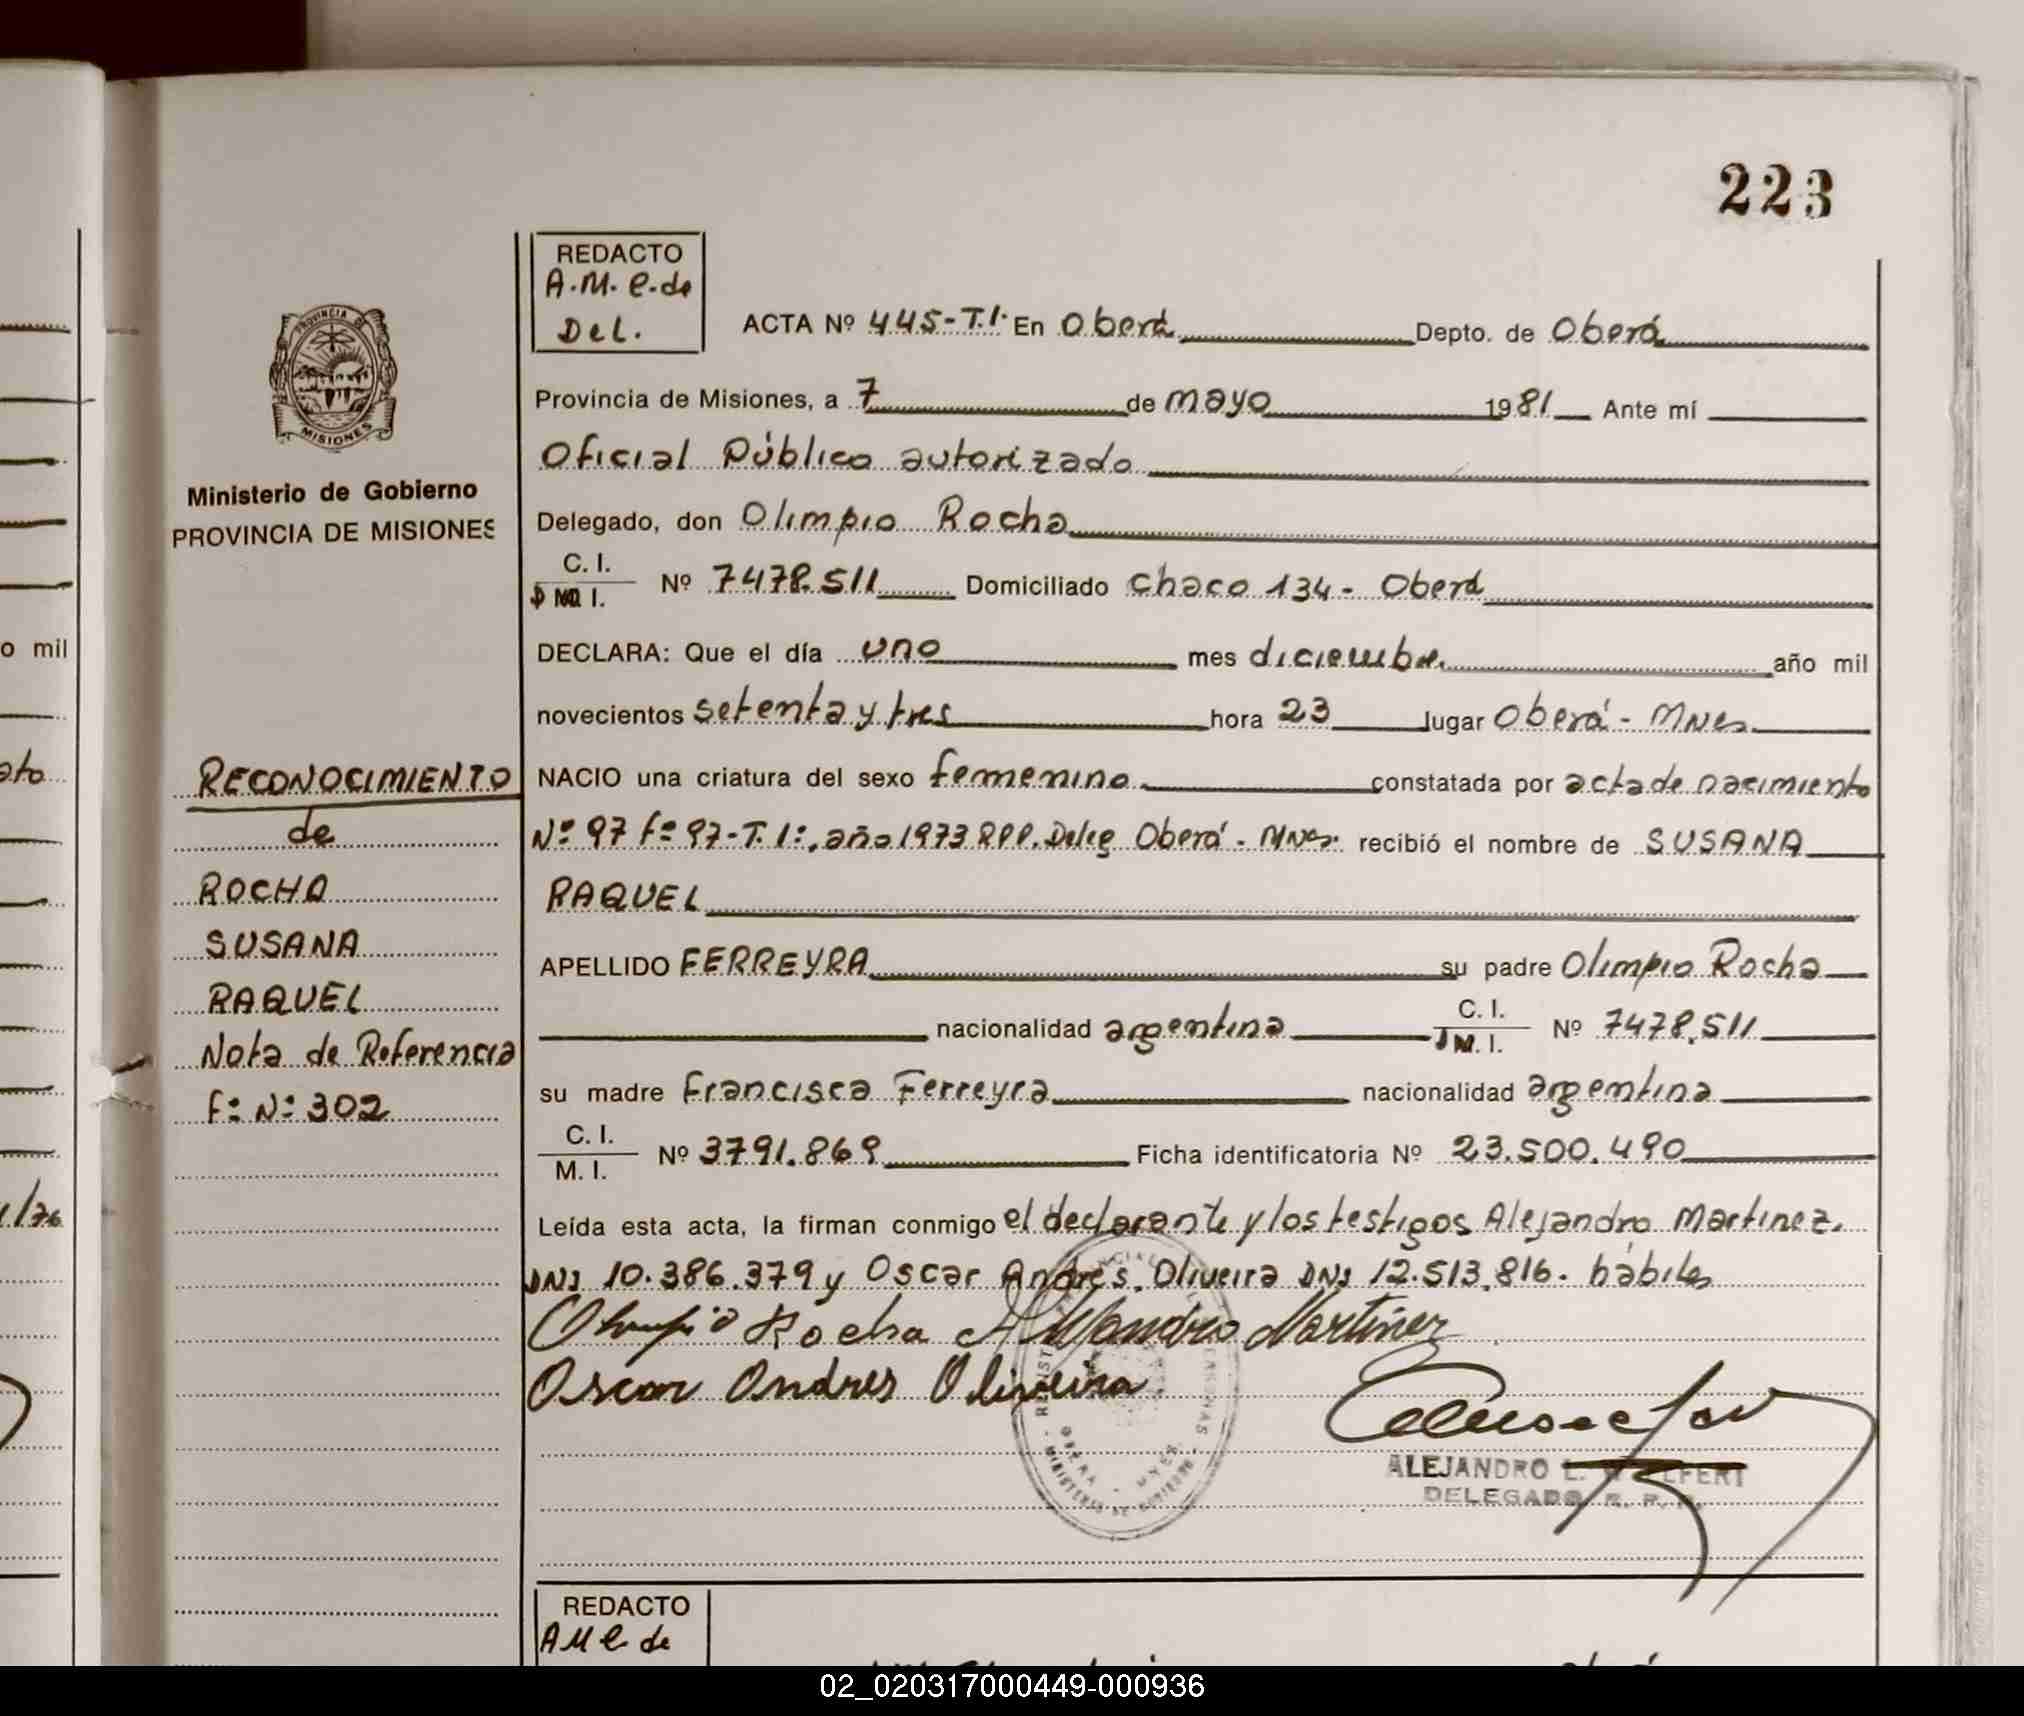 223
REDACTO
A.M. C. de
Del.
ACTA Nº 445-T.I. En Oberá Depto. de Oberá
Provincia de Misiones, a 7 de mayo 1981 Ante mí
Oficial Público autorizado
Delegado, don Olimpio Rocha
C. I.
M. I. Nº 7478.511 Domiciliado Chaco 134 - Oberá
DECLARA: Que el día uno mes diciembre año mil
novecientos setenta y tres hora 23 lugar Oberá - Mnes
NACIO una criatura del sexo femenino constatada por acta de nacimiento
Nº 97 Fº 97-T. I:, año 1973 RPP. Deleg Oberá - Mnes. recibió el nombre de SUSANA
RAQUEL
APELLIDO FERREYRA su padre Olimpio Rocha
nacionalidad argentina C. I.
M. I. Nº 7478.511
su madre Francisca Ferreyra nacionalidad argentina
C. I.
M. I. Nº 3791.869 Ficha identificatoria Nº 23.500.490
Leída esta acta, la firman conmigo el declarante y los testigos Alejandro Martinez.
DNI 10.386.379 y Oscar Andres Oliveira DNI 12.513.816. hábiles
Olimpio Rocha Alejandro Martinez
Oscar Andres Oliveira
ALEJANDRO L.
DELEGADO R. P. P.
PROVINCIA DE
MISIONES
Ministerio de Gobierno
PROVINCIA DE MISIONES
RECONOCIMIENTO
de
ROCHA
SUSANA
RAQUEL
Nota de Referencia
Fº Nº 302
REDACTO
A M C de
o mil
02_020317000449-000936